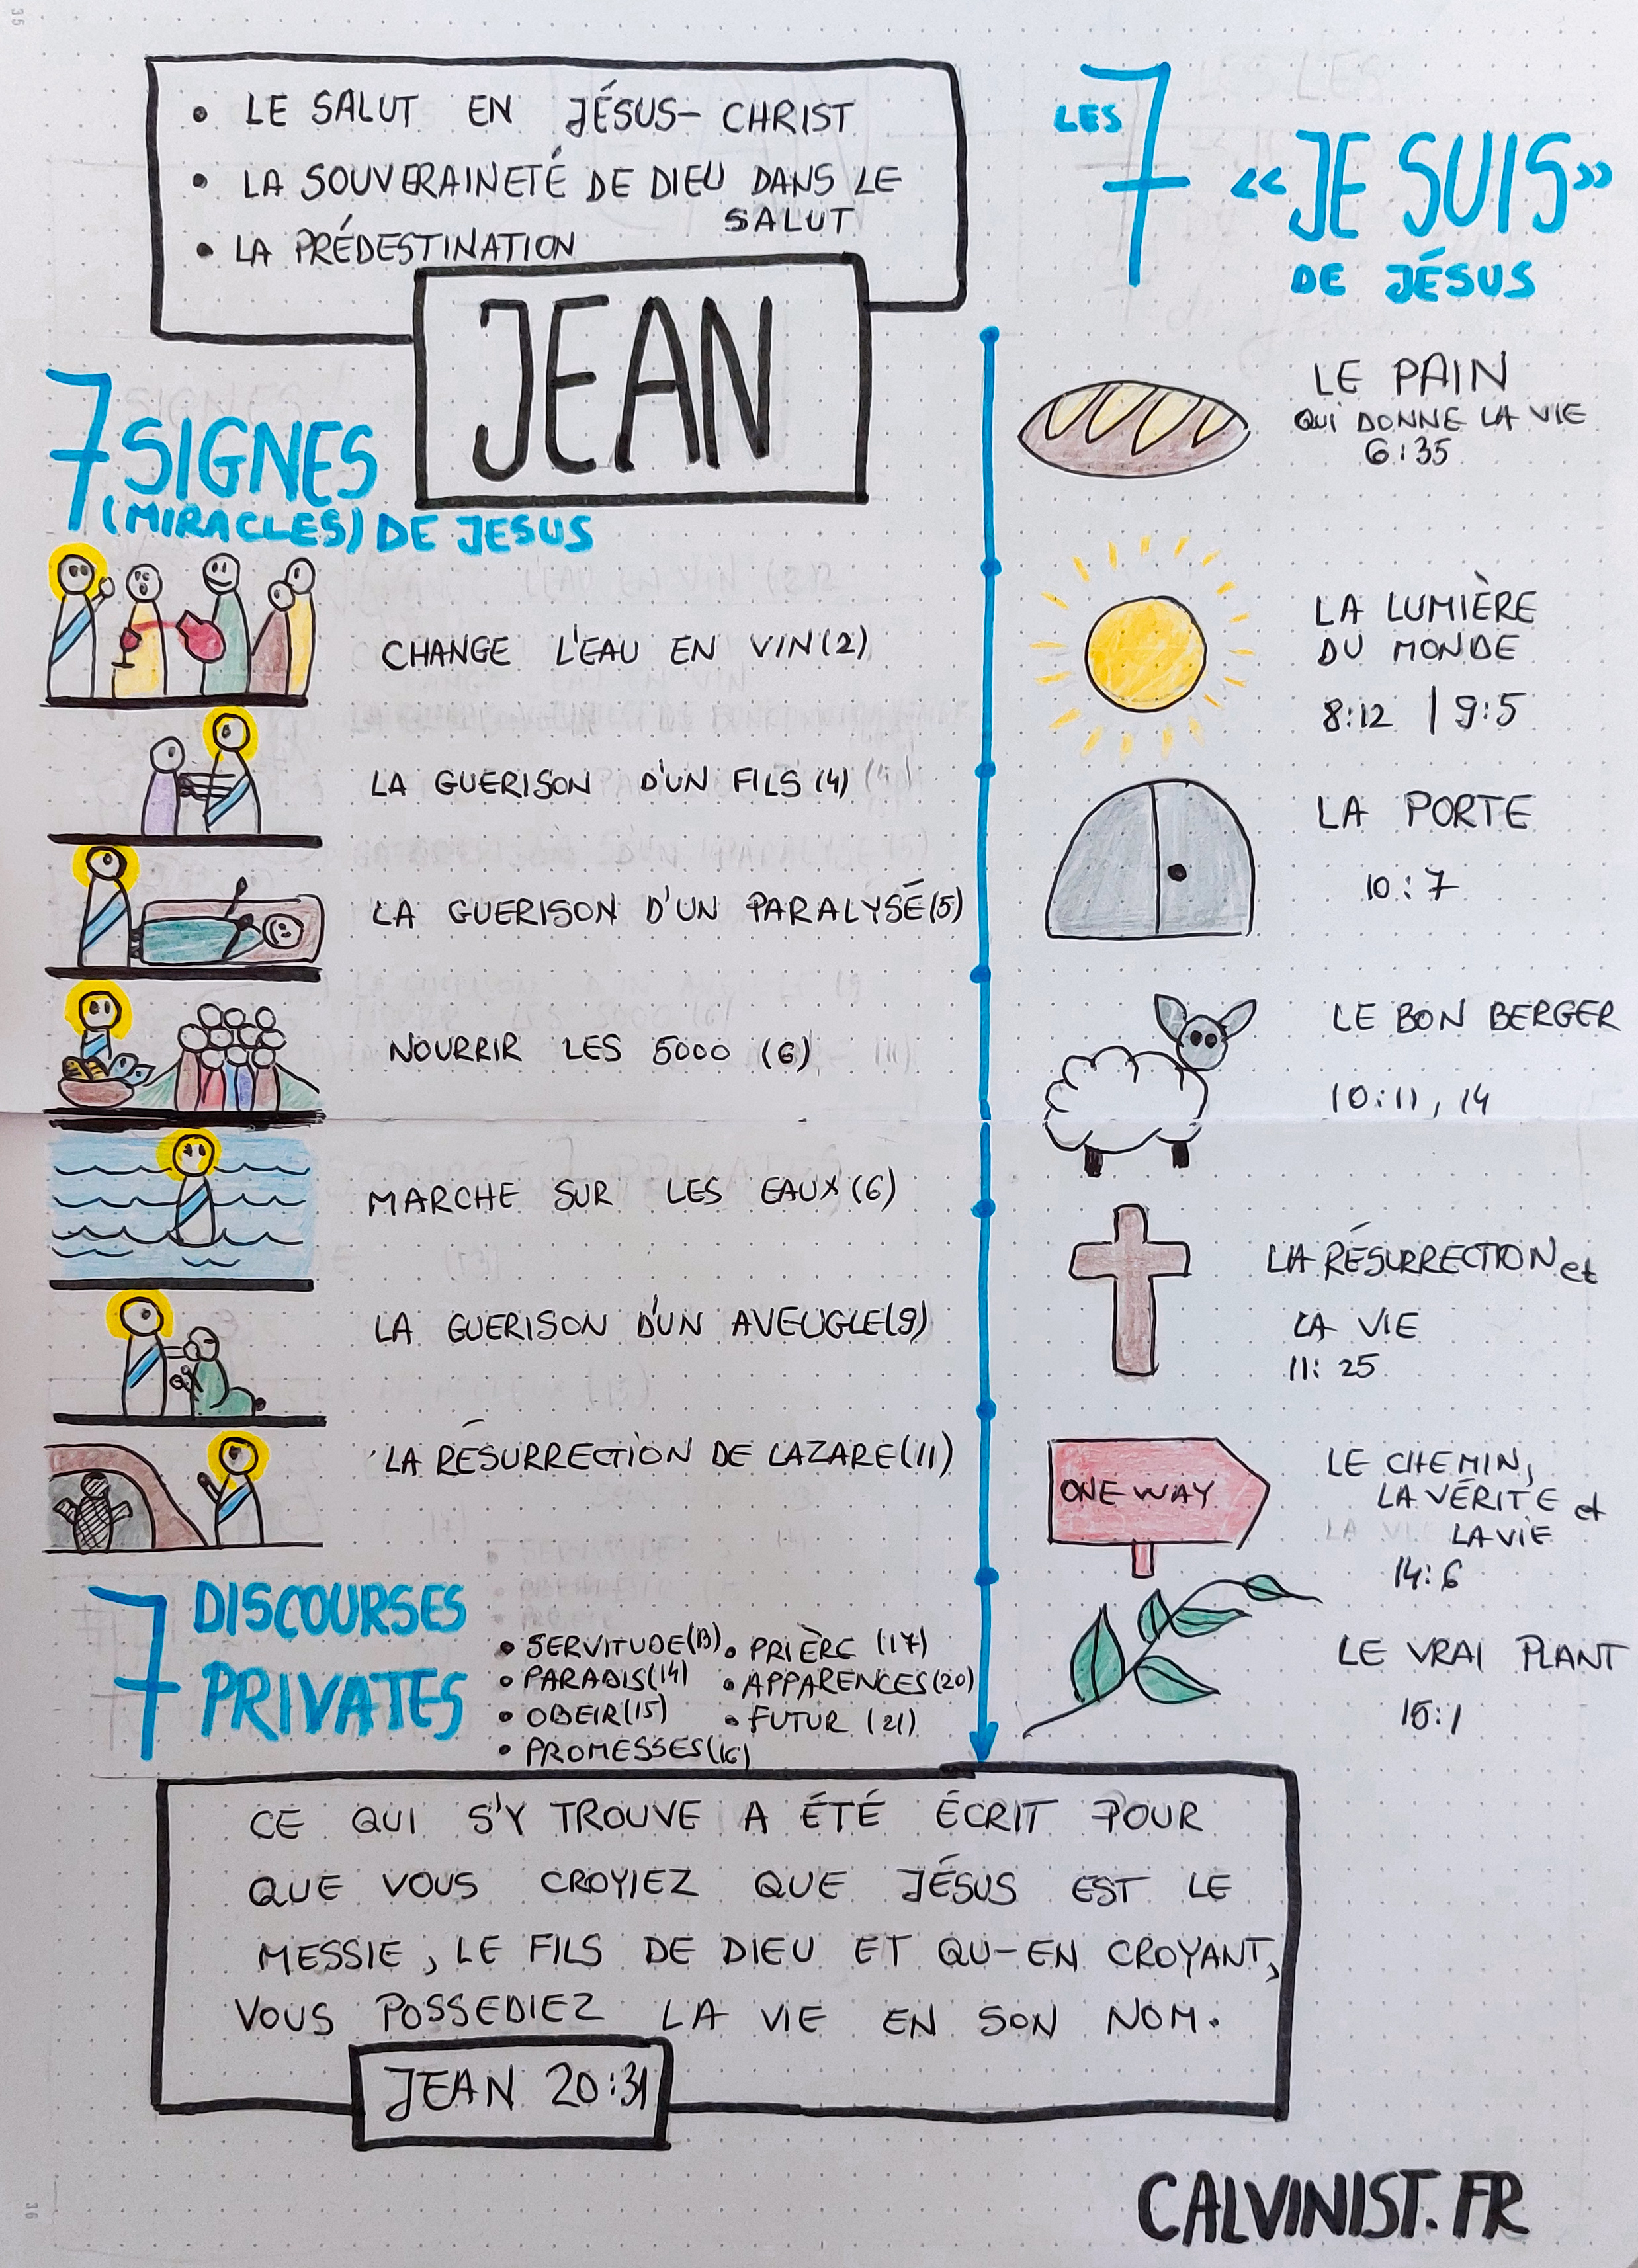 • LE SALUT EN JÉSUS-CHRIST
• LA SOUVERAINETÉ DE DIEU DANS LE
SALUT
• LA PRÉDESTINATION
JEAN
7 SIGNES
(MIRACLES) DE JESUS
CHANGE L'EAU EN VIN (2)
LA GUERISON D'UN FILS (4)
LA GUERISON D'UN PARALYSÉ (5)
NOURRIR LES 5000 (6)
MARCHE SUR LES EAUX (6)
LA GUERISON D'UN AVEUGLE (9)
LA RÉSURRECTION DE LAZARE (11)
7 DISCOURSES
PRIVATES
• SERVITUDE (13)
• PARADIS (14)
• OBEIR (15)
• PROMESSES (16)
• PRIÈRE (17)
• APPARENCES (20)
• FUTUR (21)
LES 7 «JE SUIS»
DE JÉSUS
LE PAIN
QUI DONNE LA VIE
6:35
LA LUMIÈRE
DU MONDE
8:12 | 9:5
LA PORTE
10:7
LE BON BERGER
10:11, 14
LA RÉSURRECTION et
LA VIE
11:25
ONE WAY
LE CHEMIN,
LA VÉRITÉ et
LA VIE
14:6
LE VRAI PLANT
15:1
CE QUI S'Y TROUVE A ÉTÉ ÉCRIT POUR
QUE VOUS CROYIEZ QUE JÉSUS EST LE
MESSIE, LE FILS DE DIEU ET QU-EN CROYANT,
VOUS POSSEDIEZ LA VIE EN SON NOM.
JEAN 20:31
CALVINIST.FR
35
36